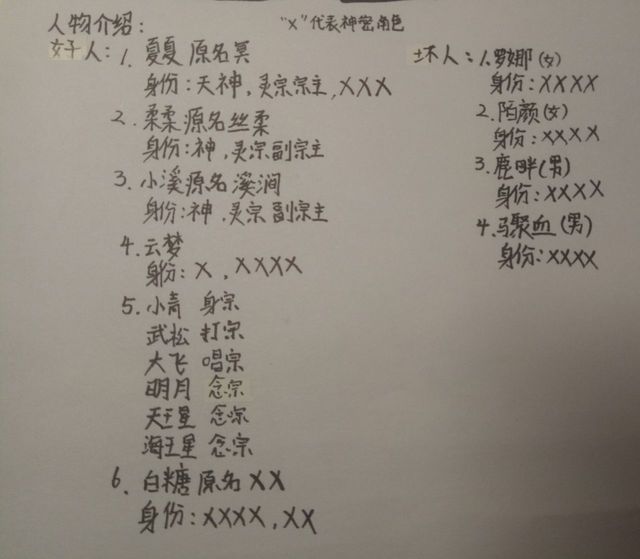 人物介绍：
"X"代表神密角色
好人：1. 夏夏 原名冥
身份：天神，灵宗宗主，XXX
2. 柔柔 源名丝柔
身份：神，灵宗副宗主
3. 小溪 源名 溪涧
身份：神，灵宗 副宗主
4. 云梦
身份：X，XXXX
5. 小青 身宗
武松 打宗
大飞 唱宗
明月 念宗
天王星 念宗
海王星 念宗
6. 白糖 原名 XX
身份：XXXX，XX
坏人：1. 罗娜（女）
身份：XXXX
2. 陌颜（女）
身份：XXXX
3. 鹿畔（男）
身份：XXXX
4. 马聚血（男）
身份：XXXX